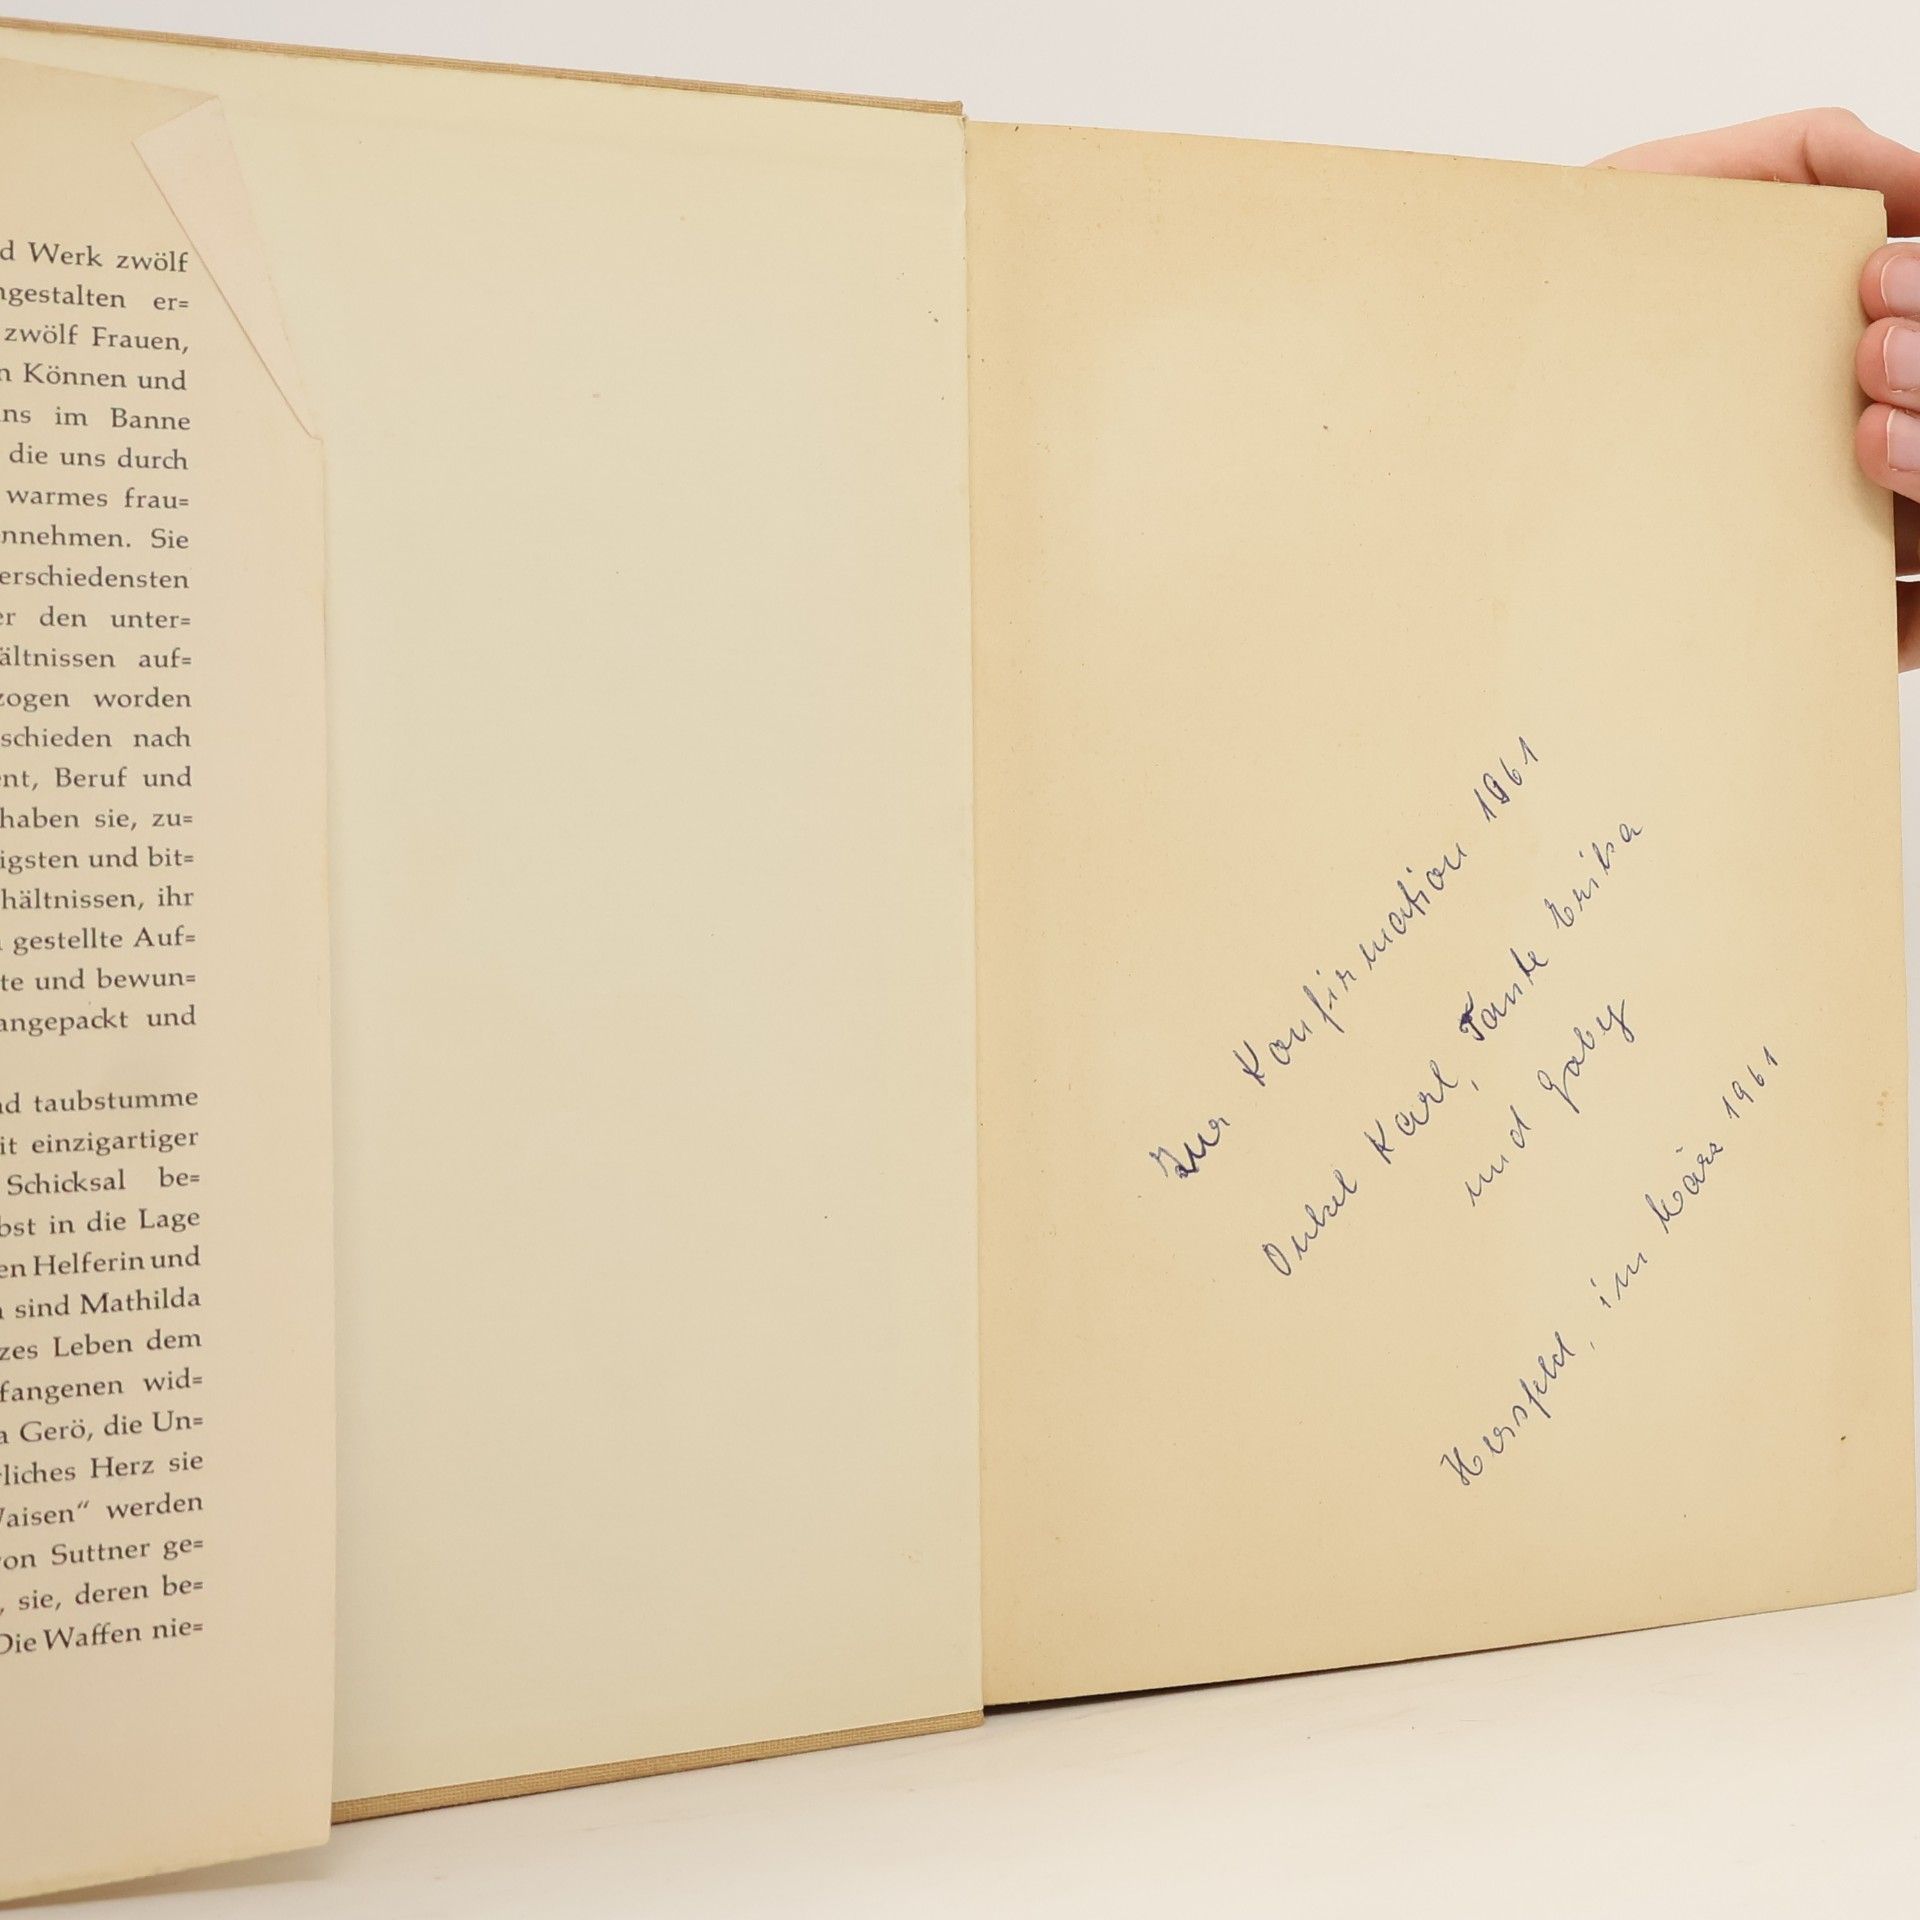 d Werk zwölf
gestalten er=
zwölf Frauen,
n Können und
ns im Banne
die uns durch
warmes frau=
nnehmen. Sie
erschiedensten
er den unter=
ältnissen auf=
zogen worden
schieden nach
ent, Beruf und
haben sie, zu=
igsten und bit=
hältnissen, ihr
gestellte Auf=
te und bewun=
angepackt und
nd taubstumme
it einzigartiger
Schicksal be=
bst in die Lage
en Helferin und
sind Mathilda
zes Leben dem
fangenen wid=
a Gerö, die Un=
rliches Herz sie
Waisen“ werden
von Suttner ge=
, sie, deren be=
Die Waffen nie=
Zur Konfirmation 1961
Onkel Karl, Tante Erika
und Gaby
Hersfeld, im März 1961